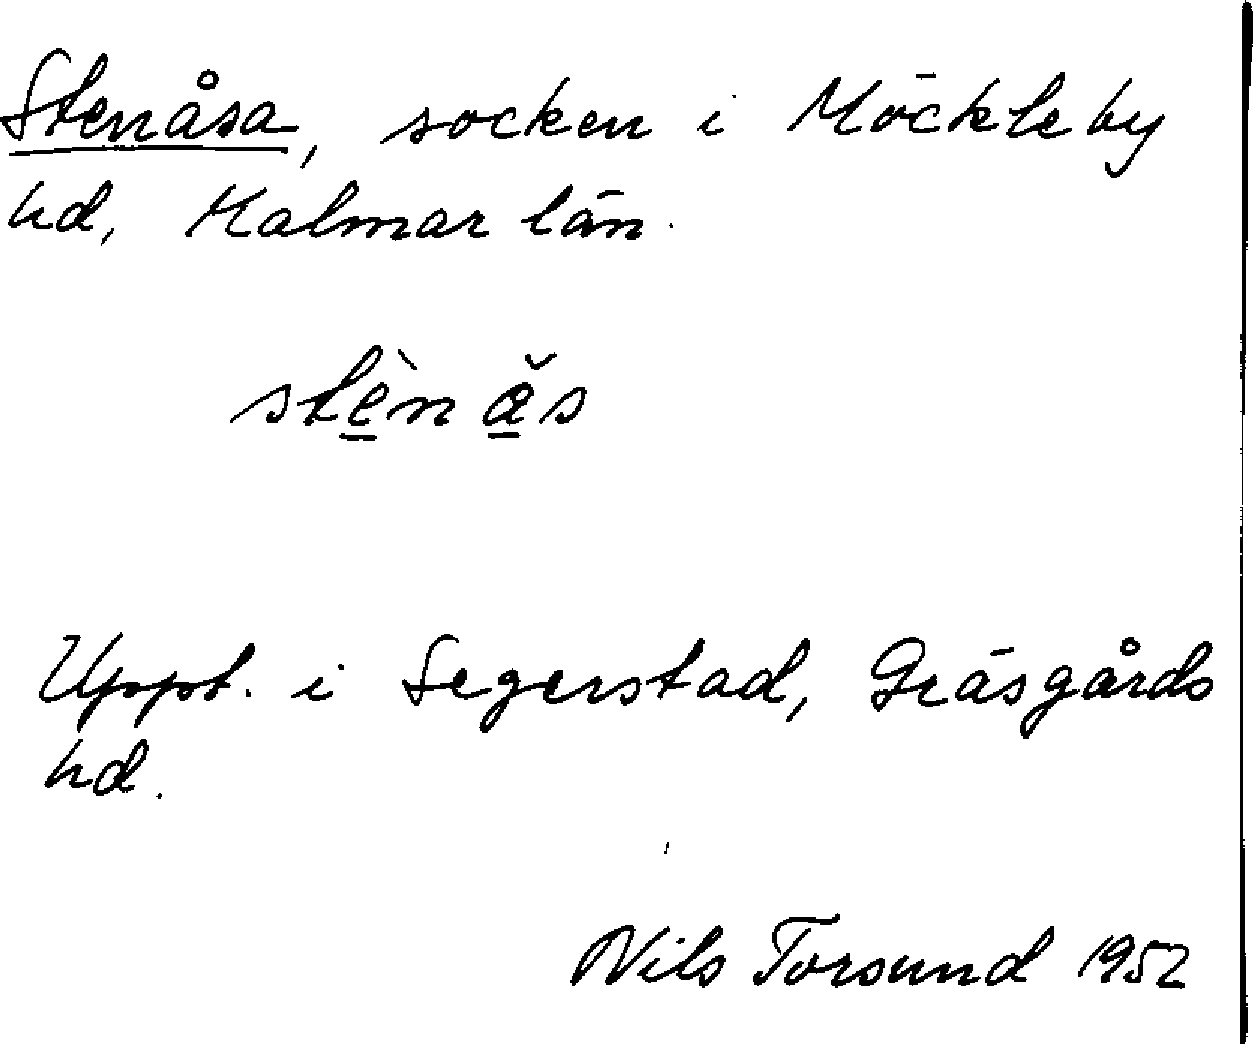 Stenåsa, socken i Möckleby
hd, Kalmar län.
stè̱n ă̱s
Uppt. i Segerstad, Gräsgårds
hd.
Nils Torsund 1952